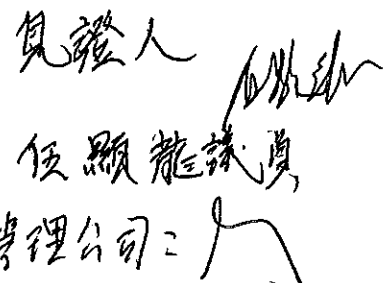 見證人
伍顯龍議員
管理公司：